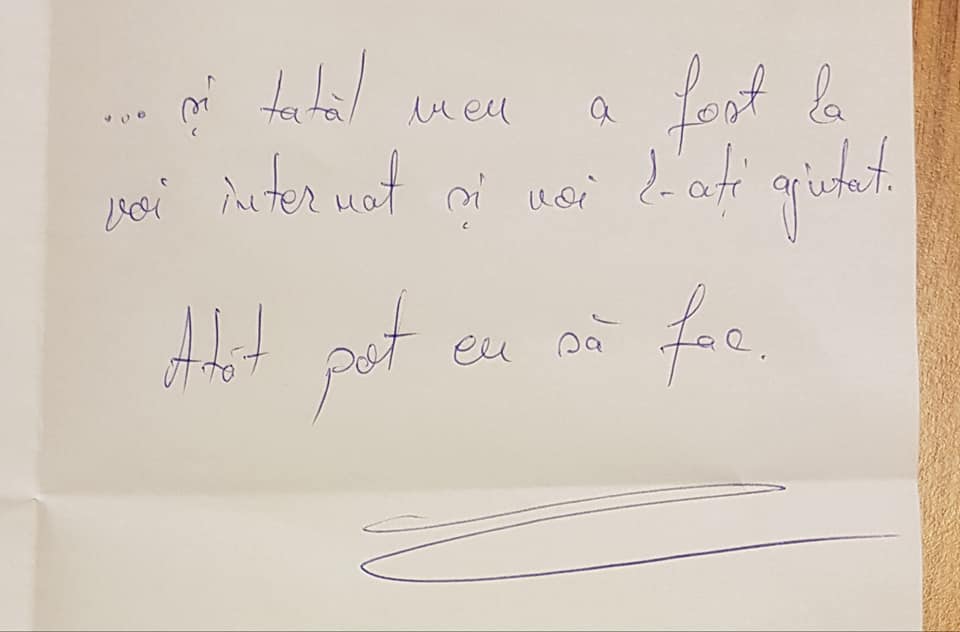 ... și tatăl meu a fost la
voi internat și voi l-ați ajutat.
Atât pot eu să fac.